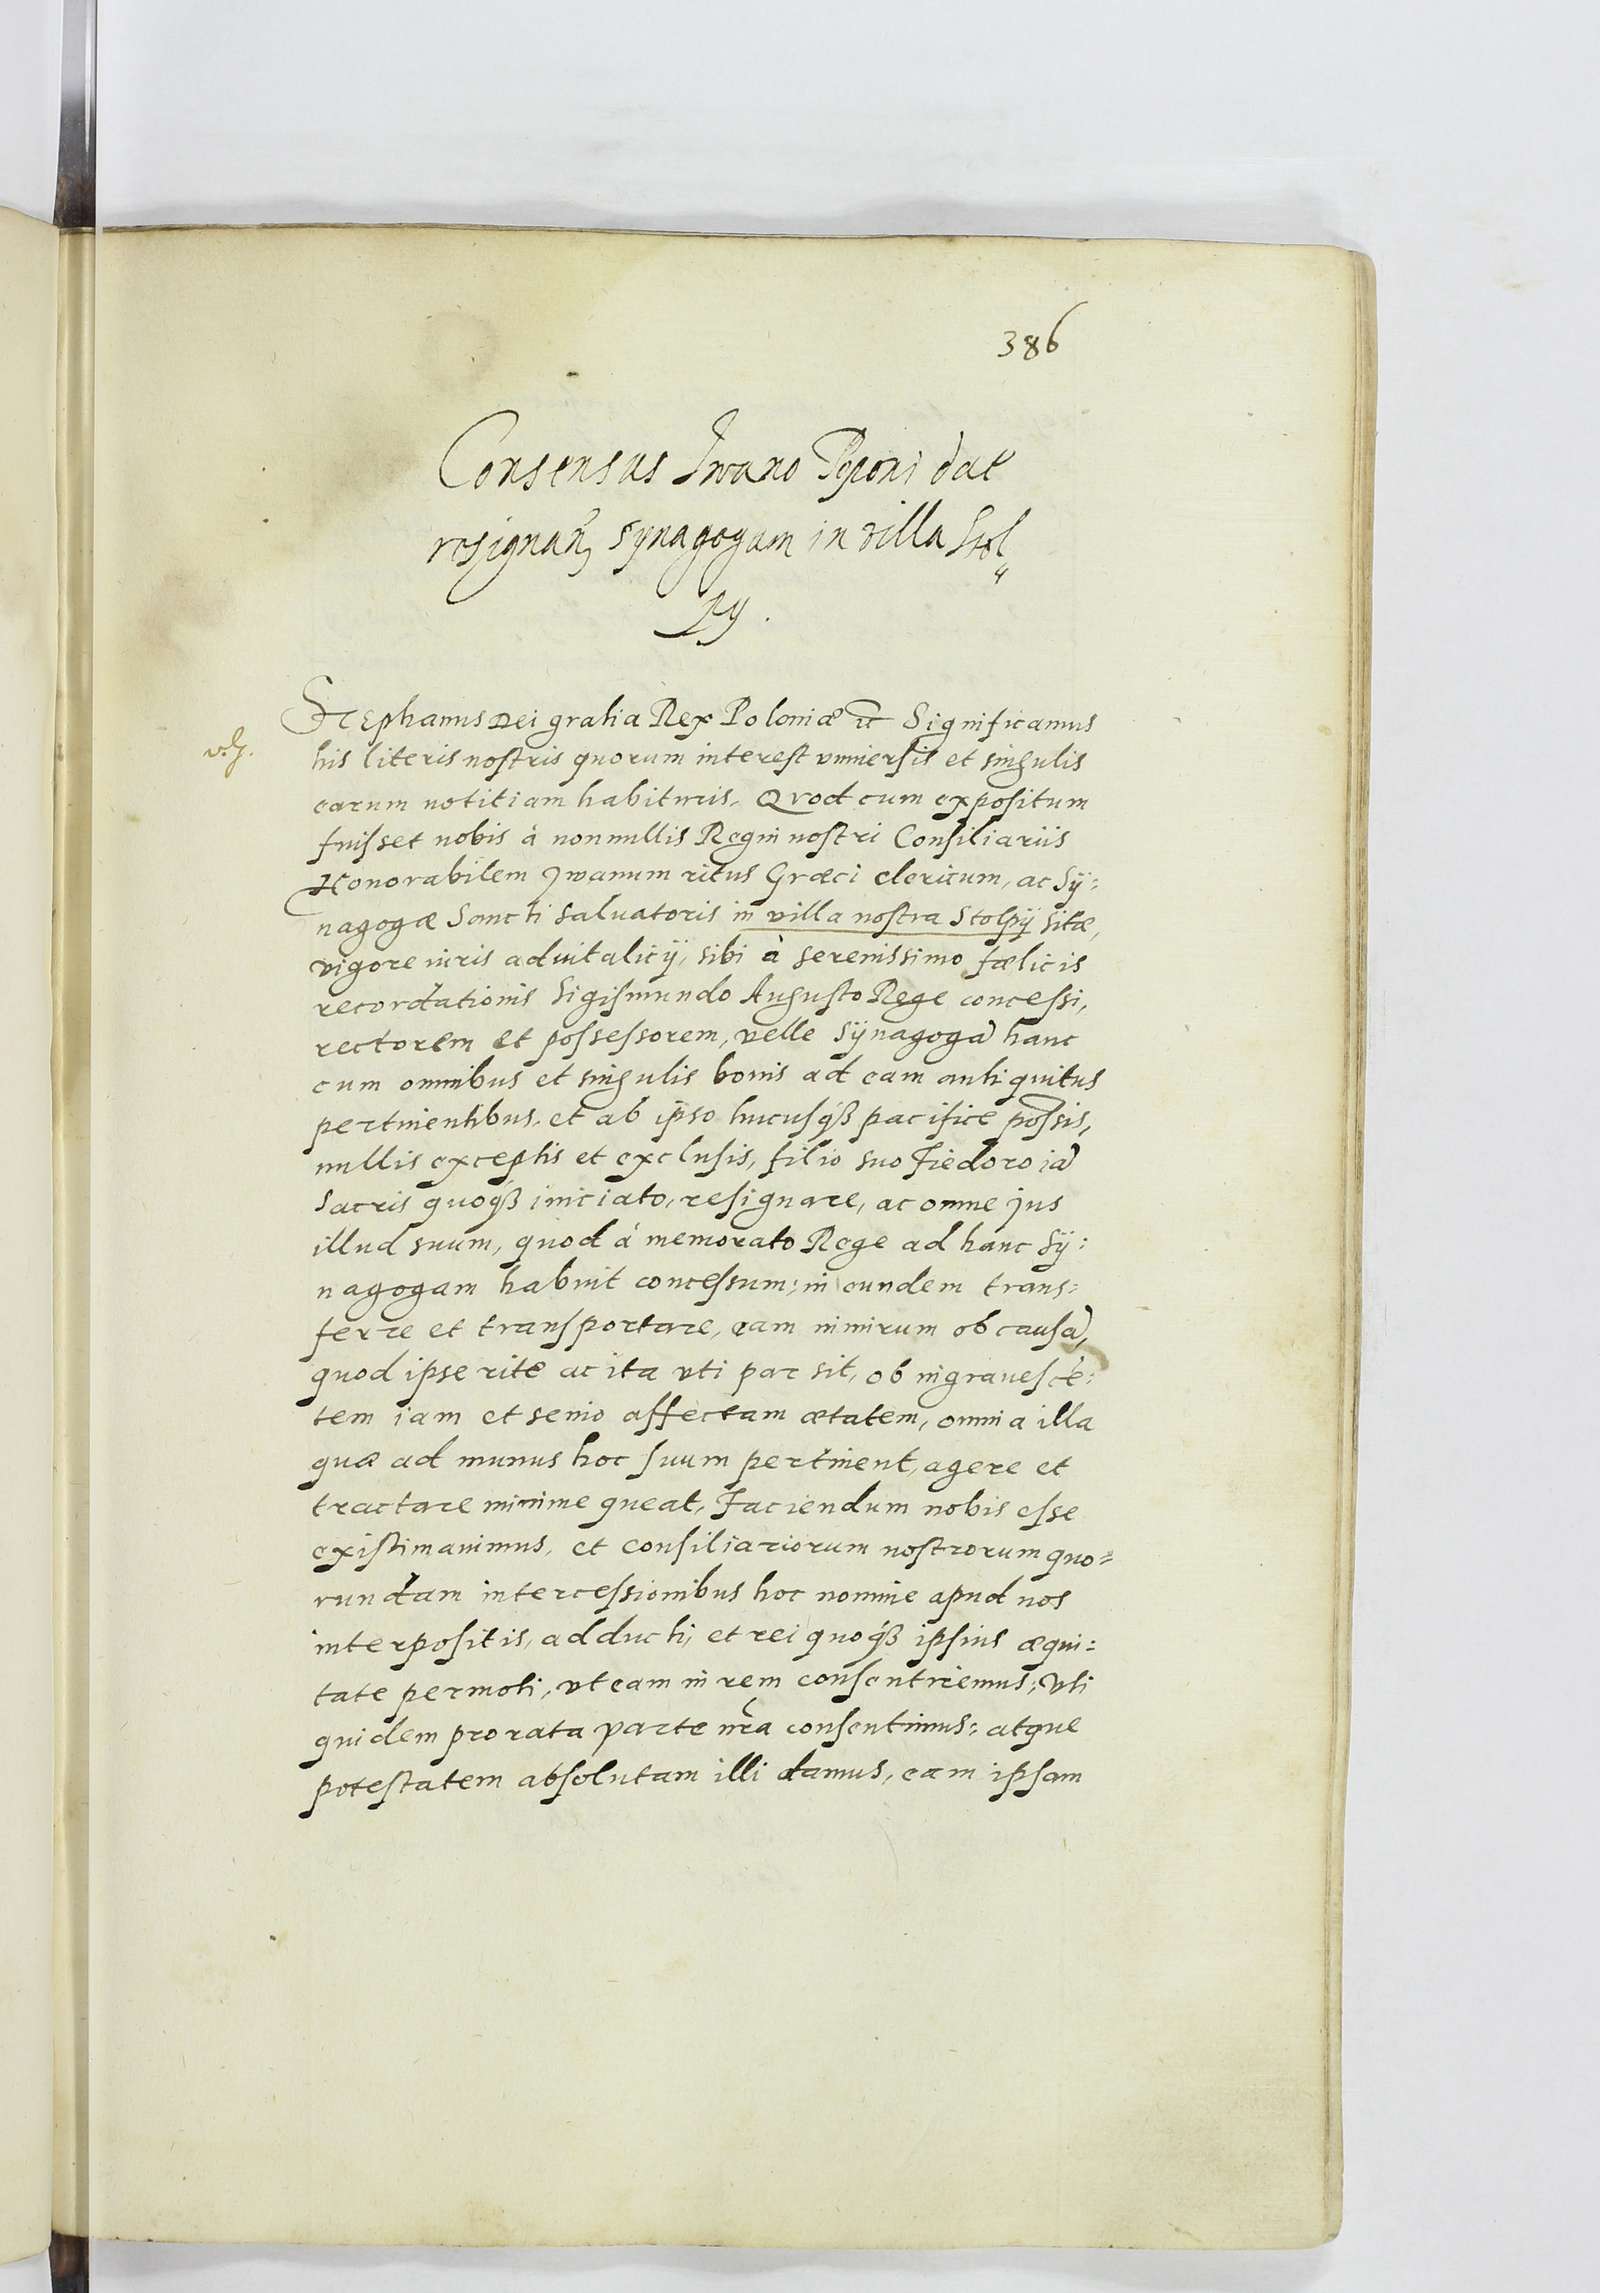 386
Consensus Iwano Poponi dat
resignan synagogam in villa Stol
py.
Stephanus Dei gratia Rex Poloniæ etc Significamus
his literis nostris quorum interest vniuersis et singulis
earum notitiam habituris. Qvod cum expositum
fuisset nobis à nonnullis Regni nostri Consiliariis
Honorabilem Jwanum ritus Græci clericum, ac Sÿ:
nagogæ Sancti Saluatoris in villa nostra Stolpij sitæ,
vigore iuris aduitalicij, sibi à serenissimo fælicis
recordationis Sigismundo Augusto Rege concessi,
rectorem et possessorem, velle Sÿnagogā hanc
cum omnibus et singulis bonis ad eam antiquitus
pertinentibus, et ab ipso hucusqß pacifice possis,
nullis exceptis et exclusis, filio suo Fiedoro iā
Sacris quoqß iniciato, resignare, ac omne jus
illud suum, quod à memorato Rege ad hanc Sÿ:
nagogam habuit concessum, in eundem trans:
ferre et transportare, eam nimirum ob causā,
quod ipse rite ac ita vti par sit, ob ingrauescē:
tem iam et senio affectam ætatem, omnia illa
quæ ad munus hoc suum pertinent, agere et
tractare minime queat, Faciendum nobis esse
existimauimus, et consiliariorum nostrorum quo:
rundam intercessionibus hoc nomine apud nos
interpositis, adducti, et rei quoqß ipsius æqui:
tate permoti, vt eam in rem consentiremus, Vti
quidem pro rata parte nrā consentimus: atque
potestatem absolutam illi damus, eam ipsam